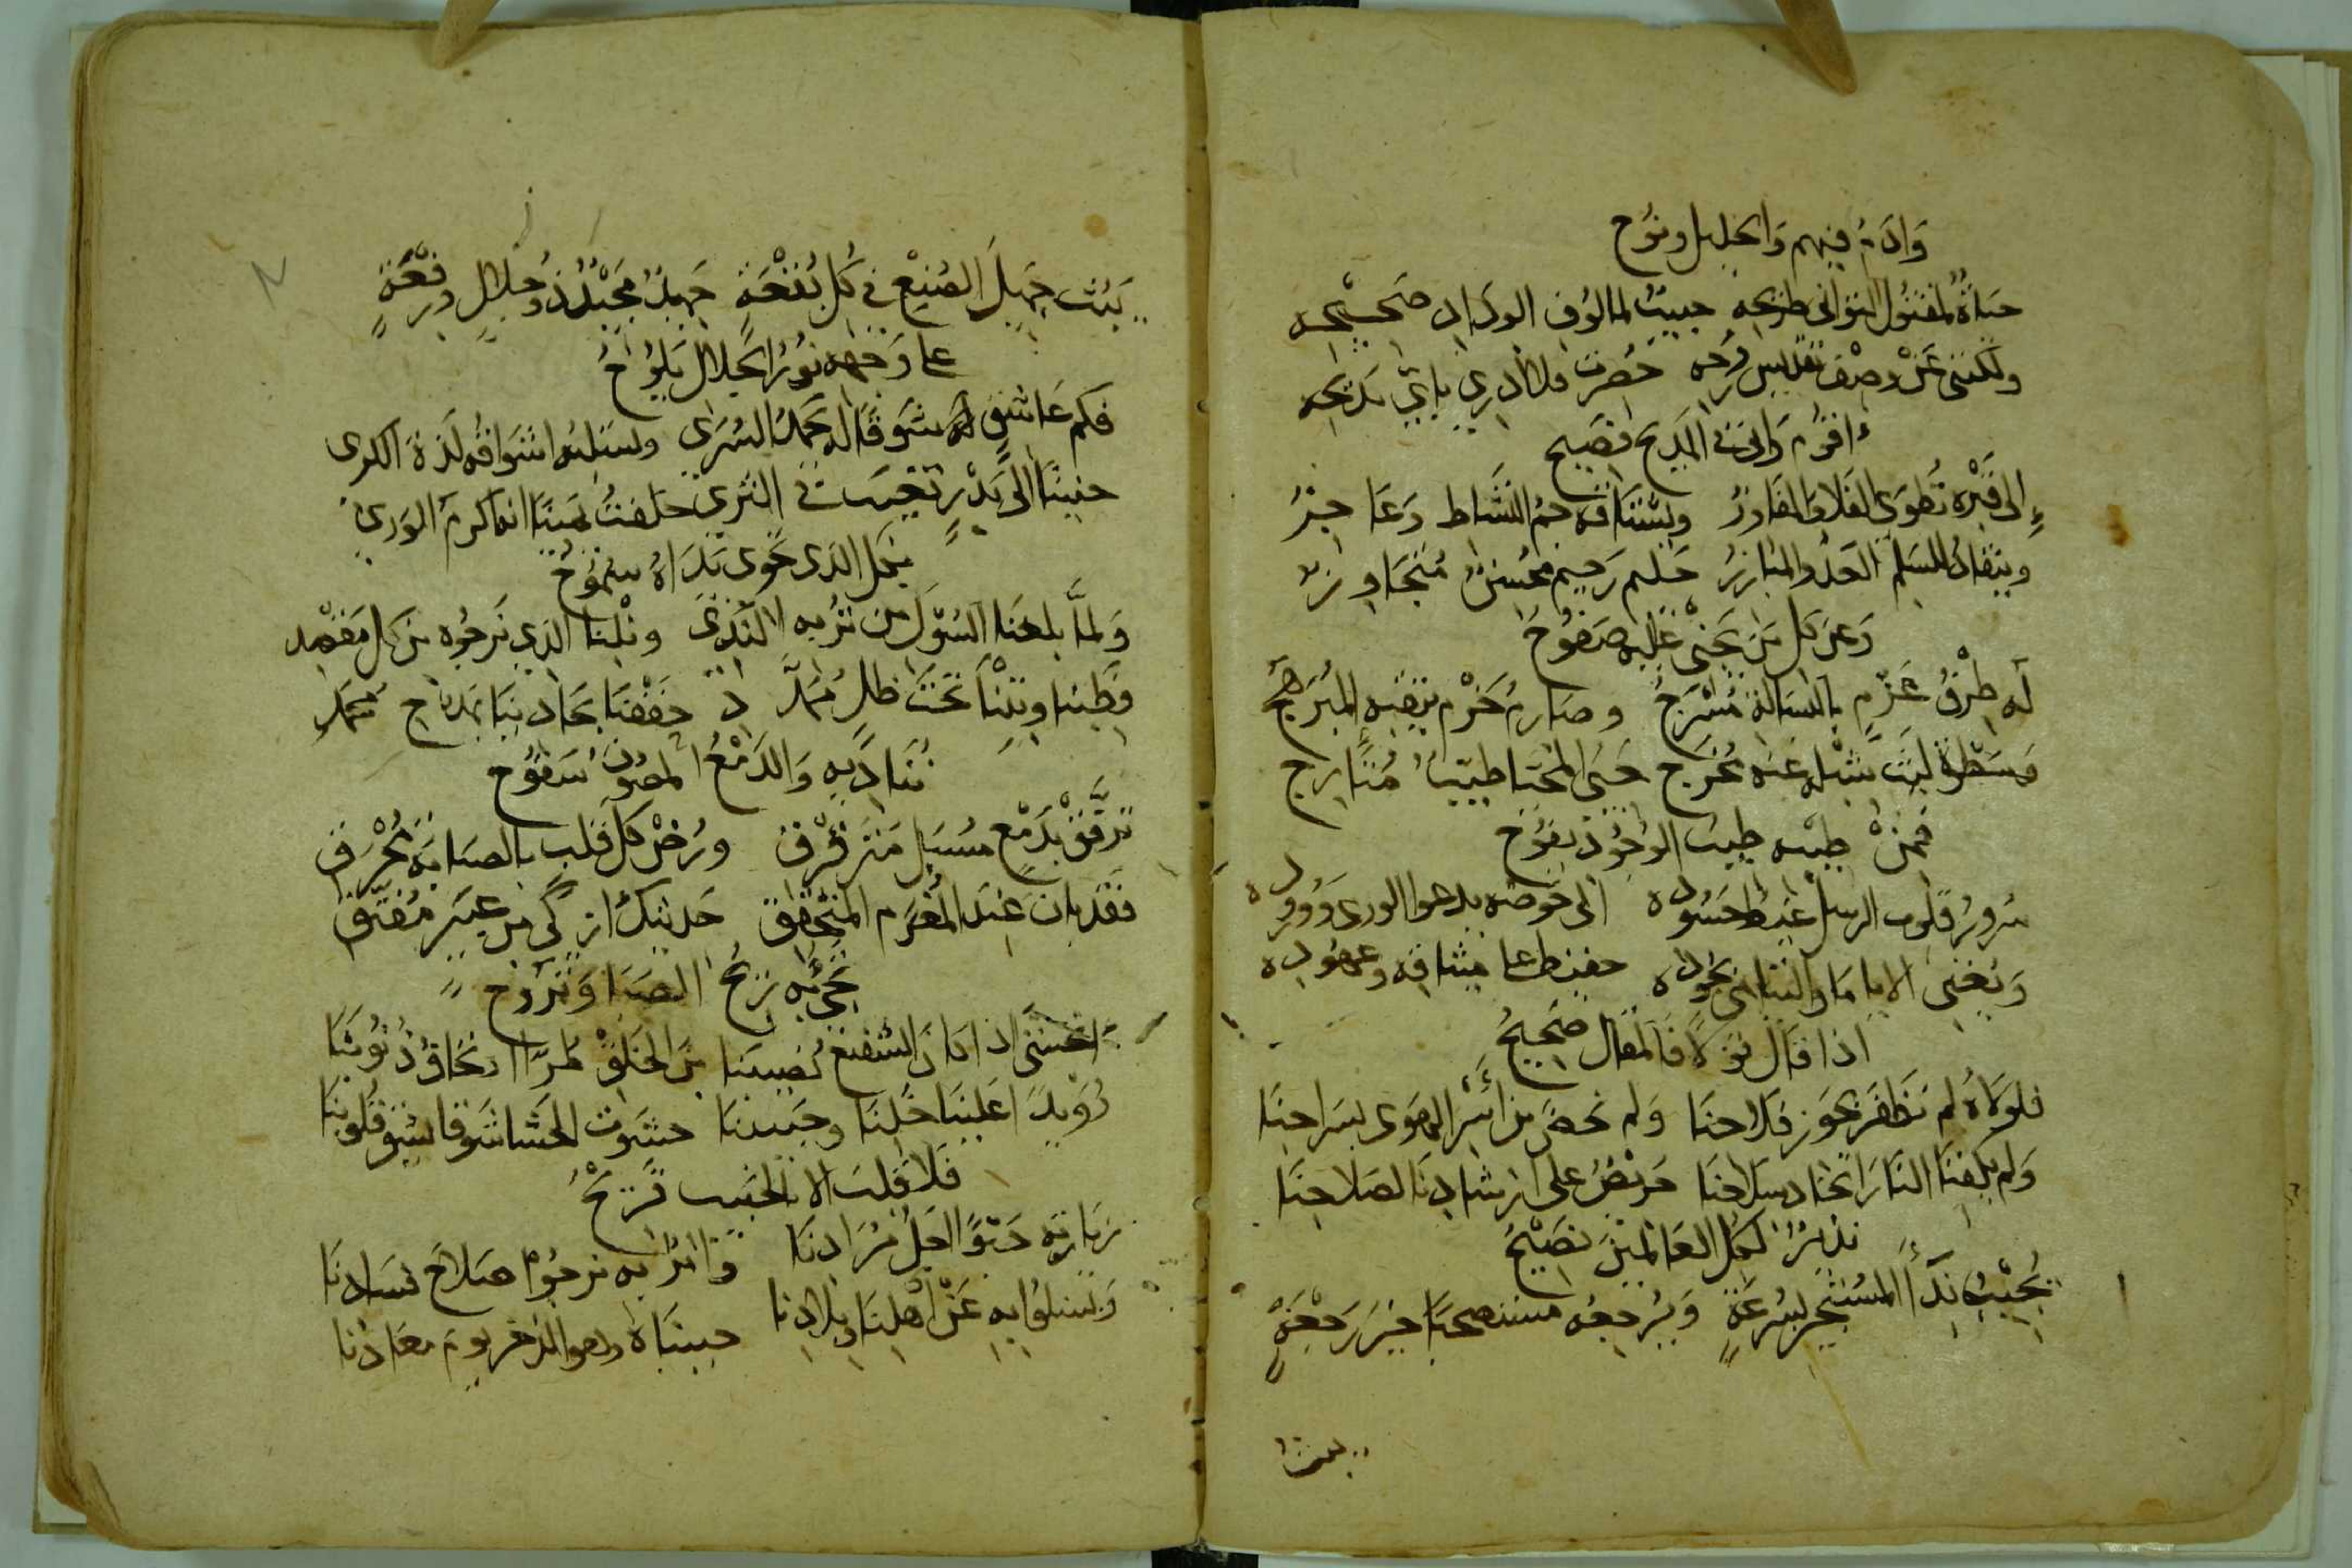 وَادَمُ فيهم وَالخليل ونوُح
حَيَاةٌ لمقتول التوانى طريحه حبيبٌ لمالوُف الودَادِ صَحيحِه
ولكننى عَنْ وصْف تقديس رُوحه حُصرتُ فلا أدرى باىّ مَديحه
أقوُم وَانى فى المَديح فصَيح
إلى قَبْره تُطوَى الفَلا وَالمفَاوزُ ويشتَاقه جمُّ النشَاط وَعَاجزُ
وينقادُ للسَلم العَدُو المبَارزُ حَليم رَحيم محُسنٌ مُتجَاوزٌ
وَعن كل مَن يَجنى عَليه صَفوُح
لَه طِرْفُ عَزْمٍ بالرسَالة مُسْرَجُ وصَارمُ حَزْم
وسَطوة ليَث شبْله عَنه مُخرَج حَيىّ المحيَا طيّبٌ مُتأرج
فمنْ طيبه طيبَ الوجُوُد يفوُح
سُروُرُ قلوُب الرسل غيَظ حَسُوده الى حَوضه يدعوا الورى وَوُروُده
وَيُغنى الايامَا واليتَامَى بجوُده حفيظ على ميثاقه وعهوُده
اذا قَال قوْلاً فَالمقال صَحيحُ
فلوَلاهُ لم نَظفَر بحَوز فَلاحنَا وَلم نحضَ من أسْر الهَوى بسَراحنَا
وَلم يكفِنَا النَارَ اتخاد سِلاحنَا حَريْصُ على ارشادِنَا لصَلاحِنَا
نذيرٌ لكل العَالمينَ نصَيْحُ
يُجيْبُ نِدَاءَ المسُتجير بسُرعَةٍ وَيُرجعُه مستصحبَا خيَرَ رَجْعَةٍ
يبيُت
يَبيُت جَميلَ الصُنِيْع فى كل بُقْعَة جَميلٌ مَجيْدٌ ذوُ جلالٍ ورِفْعَةٍ
على وَجهه نوُرُ الجَلال يَلوُحُ
فكم عَاشقٍ لَه شَوقًا له حَمدُ السُرَى وسَلبه اشوَاقُه لذةَ الكرى
حنينًا الى بَدْرٍ تغيبَ فى الثرى حَلفتُ يَمينًا انه اكرمُ الورى
بكل الذى تحوى يدَاهُ سمُوُحُ
وَلمَّا بلغنَا السُوْلَ من تُربه النَدى ونْلِنا الذى نَرجُوه من كل مَقصْد
وَطِبنا وبتْنَا تَحتَ ظل مُمَدَّد خَفقْنا بحَادينَا بمدَّاح مُحمَد
نُنَادَيه وَالدَمْعُ المصُونُ سَفوُح
تَرفَّقْ بدَمْع مُسبَل مَترقْرق ورُضْ كل قَلب بالصبَابَة مُحْرَق
فقَد بان عنَد المُغرَم المتحُقّق حَديثك ازكى من عبَير مُفتق
تجئُ به رِيْحُ الصبَا وَترُوح
أنخشىَ اذا كانَ الشفيعُ نُصيبنا من الخلقْ طُرّا ان نخافُ ذُنوُبنَا
رُوَيْدًا عَلينَا خَلّنَا وحبيبنَا حشوت الحَشا شَوقا
فَلا قلبَ الا بالحبيب قَريْحُ
زيَارته حَقًا اجَلُ مُرَادنَا وانّا به نرجُوا صَلاح فسَادنَا
وَنَسلوُا به عَنْ أهْلِنَا وبِلادِنا حبيبنَاه وهو الذخر يومَ معَادِنا